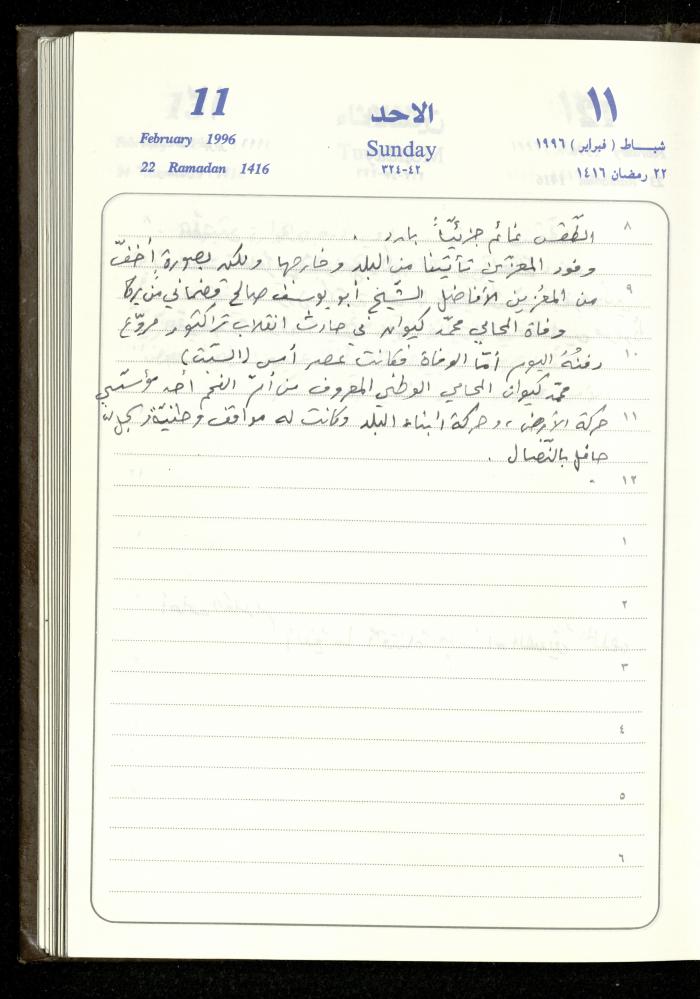 11
الاحد
١١
February 1996
Sunday
شباط ( فبراير ) ١٩٩٦
22 Ramadan 1416
٤٢-٣٢٤
٢٢ رمضان ١٤١٦
٨
الطّقس غائم جزئيّاً بارد .
وفود المعزّين تأتينا من البلد وخارجها ولكن بصورة أخفّ
٩
من المعزّين الأفاضل الشّيخ أبو يوسف صالح قضماني من يركا
وفاة المحامي محمّد كيوان في حادث انقلاب تراكتور مروّع
١٠
دفنهُ اليوم أمّا الوفاة فكانت عصر أمس (السّبت)
محمّد كيوان المحامي الوطني المعروف من أمّ الفحم أحد مؤسّسي
١١
حركة الأرض، وحركة أبناء البلد وكانت له مواقف وطنيّة
حافل بالنّضال .
١٢
١
٢
٣
٤
٥
٦